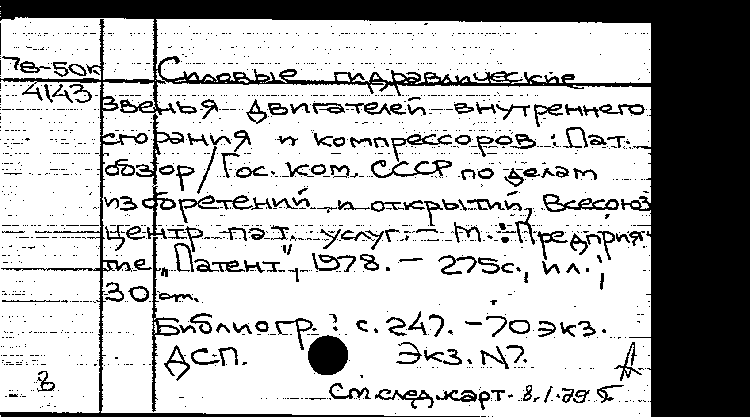 78-50к
4143
Силовые гидравлические
звенья двигателей внутреннего
сгорания и компрессоров : Пат.
обзор / Гос. ком. СССР по делам
изобретений и открытий, Всесоюз
центр пат. услуг. - М. : Предприя-
тие „Патент", 1978. - 275с., ил.;
30 см.
Библиогр.: с. 247. - 70 экз.
ДСП. Экз. N7.
8
См. след. карт. 8.1.79